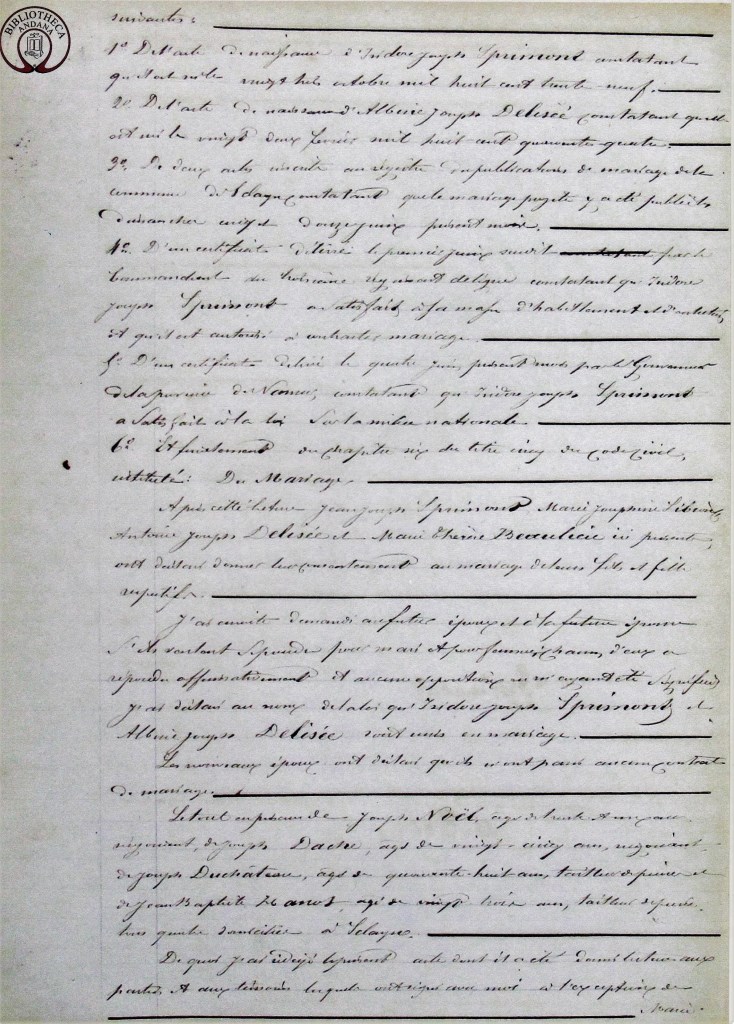 BIBLIOTHECA ANDANA
suivantes:
1º De l'acte de naissance d'Isidore Joseph Sprimont constatant
qu'il est né le vingt trois octobre mil huit cent trente neuf.
2º De l'acte de naissance d'Albine Joseph Delisée constatant qu'elle
est née le vingt deux février mil huit cent quarante quatre.
3º De deux actes inscrits au registre de publications de mariage de la
commune de Sclayn constatant que le mariage projeté y a été publié les
dimanches cinq et douze juin présent mois.
4º D'un certificat délivré le premier juin suivit par le
Commandant du troisième régiment de ligne constatant qu'Isidore
Joseph Sprimont a satisfait à sa masse d'habillement et d'entretien
et qu'il est autorisé à contracter mariage.
5º D'un certificat délivré le quatre juin présent mois par le Gouverneur
de la province de Namur, constatant qu'Isidore Joseph Sprimont
a satisfait à la loi sur la milice nationale.
6º Et finalement du chapitre six du titre cinq du code civil,
intitulé: Du Mariage.
Après cette lecture Jean Joseph Sprimont Marie Joséphine
Antoine Joseph Delisée et Marie Thérèse Beaulieu ici présents,
ont déclaré donner leur consentement au mariage de leurs fils et fille
respectifs.
J'ai ensuite demandé au futur époux et à la future épouse
s'ils veulent se prendre pour mari et pour femme, chacun d'eux a
répondu affirmativement et aucune opposition ne m'ayant été signifiée
j'ai déclaré au nom de la loi qu'Isidore Joseph Sprimont et
Albine Joseph Delisée sont unis en mariage.
Les nouveaux époux ont déclaré qu'ils n'ont passé aucun contrat
de mariage.
Le tout en présence de Joseph Noël, âgé de trente et un ans,
négociant, de Joseph Dache, âgé de vingt-cinq ans, négociant,
de Joseph Duchâteau, âgé de quarante huit ans, tailleur de pierres et
de Jean Baptiste âgé de vingt trois ans, tailleur de pierres,
tous quatre domiciliés à Sclayn.
De quoi j'ai rédigé le présent acte dont il a été donné lecture aux
parties et aux témoins lesquels ont signé avec moi à l'exception de
Marie